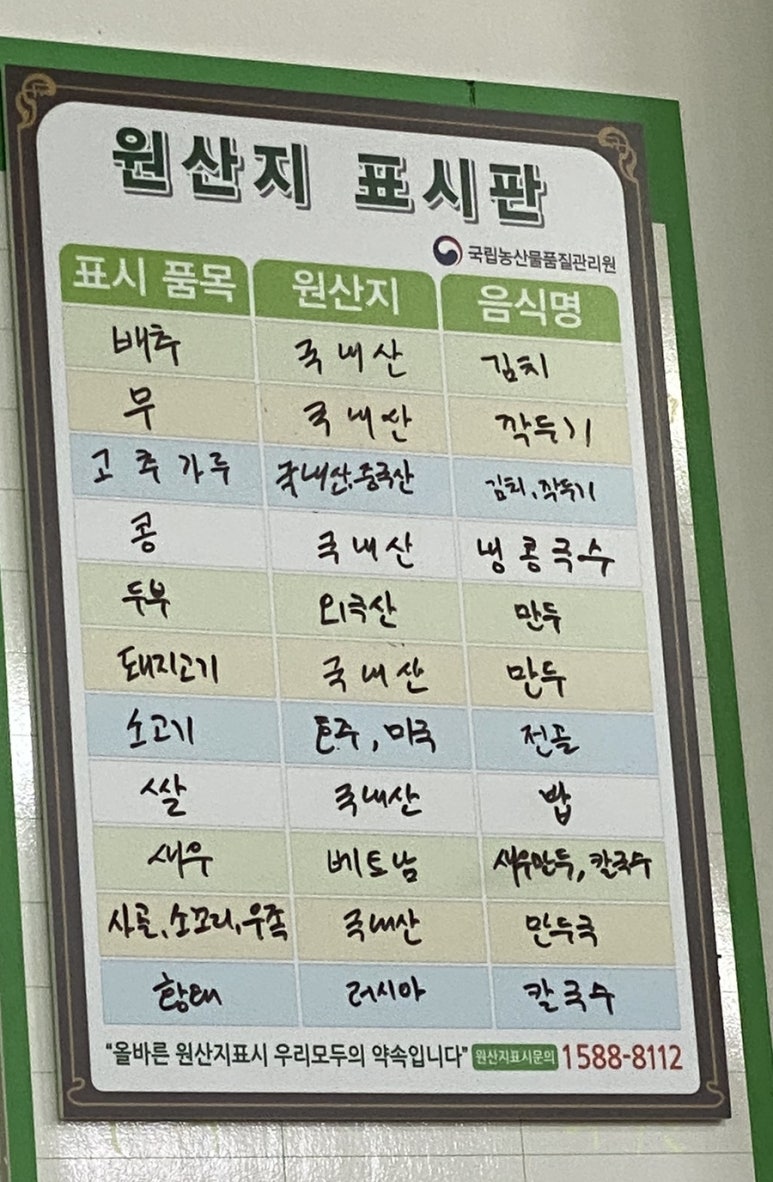 원산지 표시판
국립농산물품질관리원
표시 품목 원산지 음식명
배추 국내산 김치
무 국내산 깍두기
고추가루 국내산,중국산 김치,깍두기
콩 국내산 냉콩국수
두부 외국산 만두
돼지고기 국내산 만두
소고기 호주,미국 전골
쌀 국내산 밥
새우 베트남 새우만두,칼국수
사골,소꼬리,우족 국내산 만두국
황태 러시아 칼국수
"올바른 원산지표시 우리모두의 약속입니다" 원산지표시문의 1588-8112